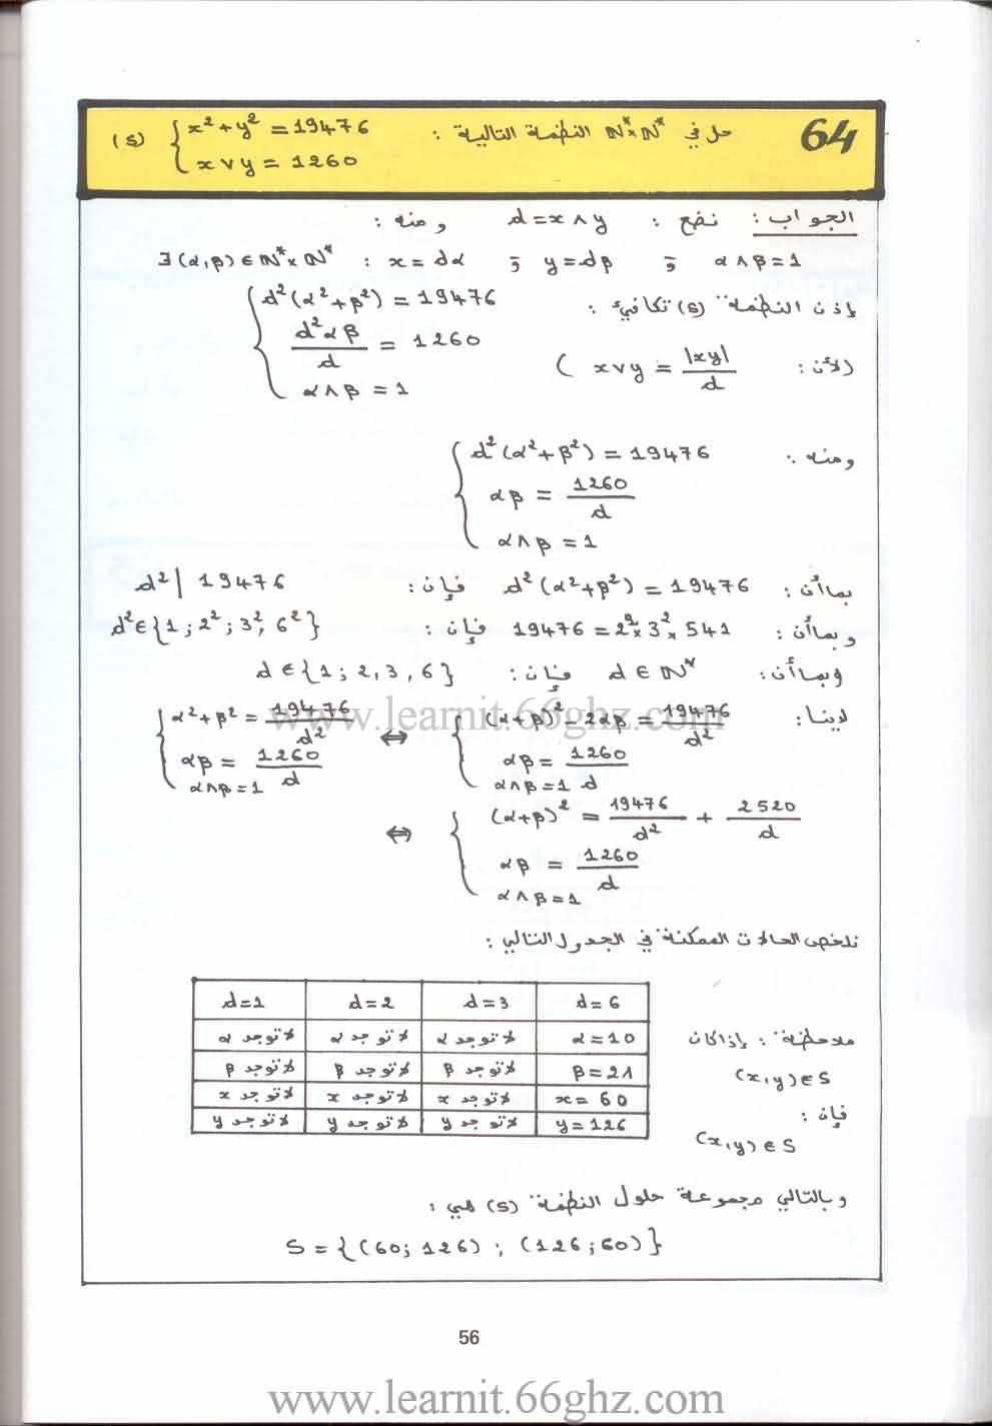 64 حل في ℕ*×ℕ* النظمة التالية : (S) { x²+y² = 19476
x ∨ y = 1260
الجواب : نضع : d = x ∧ y ومنه :
∃ (α,β) ∈ ℕ*×ℕ* : x = dα ; y = dβ ; α ∧ β = 1
إذن النظمة (S) تكافئ : { d²(α²+β²) = 19476
d²αβ / d = 1260
(لأن : x∨y = |xy| / d )
α ∧ β = 1
ومنه : { d²(α²+β²) = 19476
αβ = 1260 / d
α ∧ β = 1
بما أن : d²(α²+β²) = 19476 فإن : d² | 19476
وبما أن : 19476 = 2² × 3² × 541 فإن : d² ∈ {1 ; 2² ; 3² ; 6²}
وبما أن : d ∈ ℕ* فإن : d ∈ {1 ; 2 , 3 , 6}
لدينا : { (α+β)² - 2αβ = 19476 / d² ⇔ { α²+β² = 19476 / d²
αβ = 1260 / d αβ = 1260 / d
α∧β = 1 α∧β = 1
⇔ { (α+β)² = 19476 / d² + 2520 / d
αβ = 1260 / d
α ∧ β = 1
نلخص الحالات الممكنة في الجدول التالي :
d=1 d=2 d=3 d=6
لا توجد α لا توجد α لا توجد α α=10
لا توجد β لا توجد β لا توجد β β=21
لا توجد x لا توجد x لا توجد x x=60
لا توجد y لا توجد y لا توجد y y=126
ملاحظة : إذا كان
(x,y) ∈ S
فإن :
(x,y) ∈ S
وبالتالي مجموعة حلول النظمة (S) هي :
S = {(60; 126) ; (126 ; 60)}
56
www.learnit.66ghz.com
www.learnit.66ghz.com